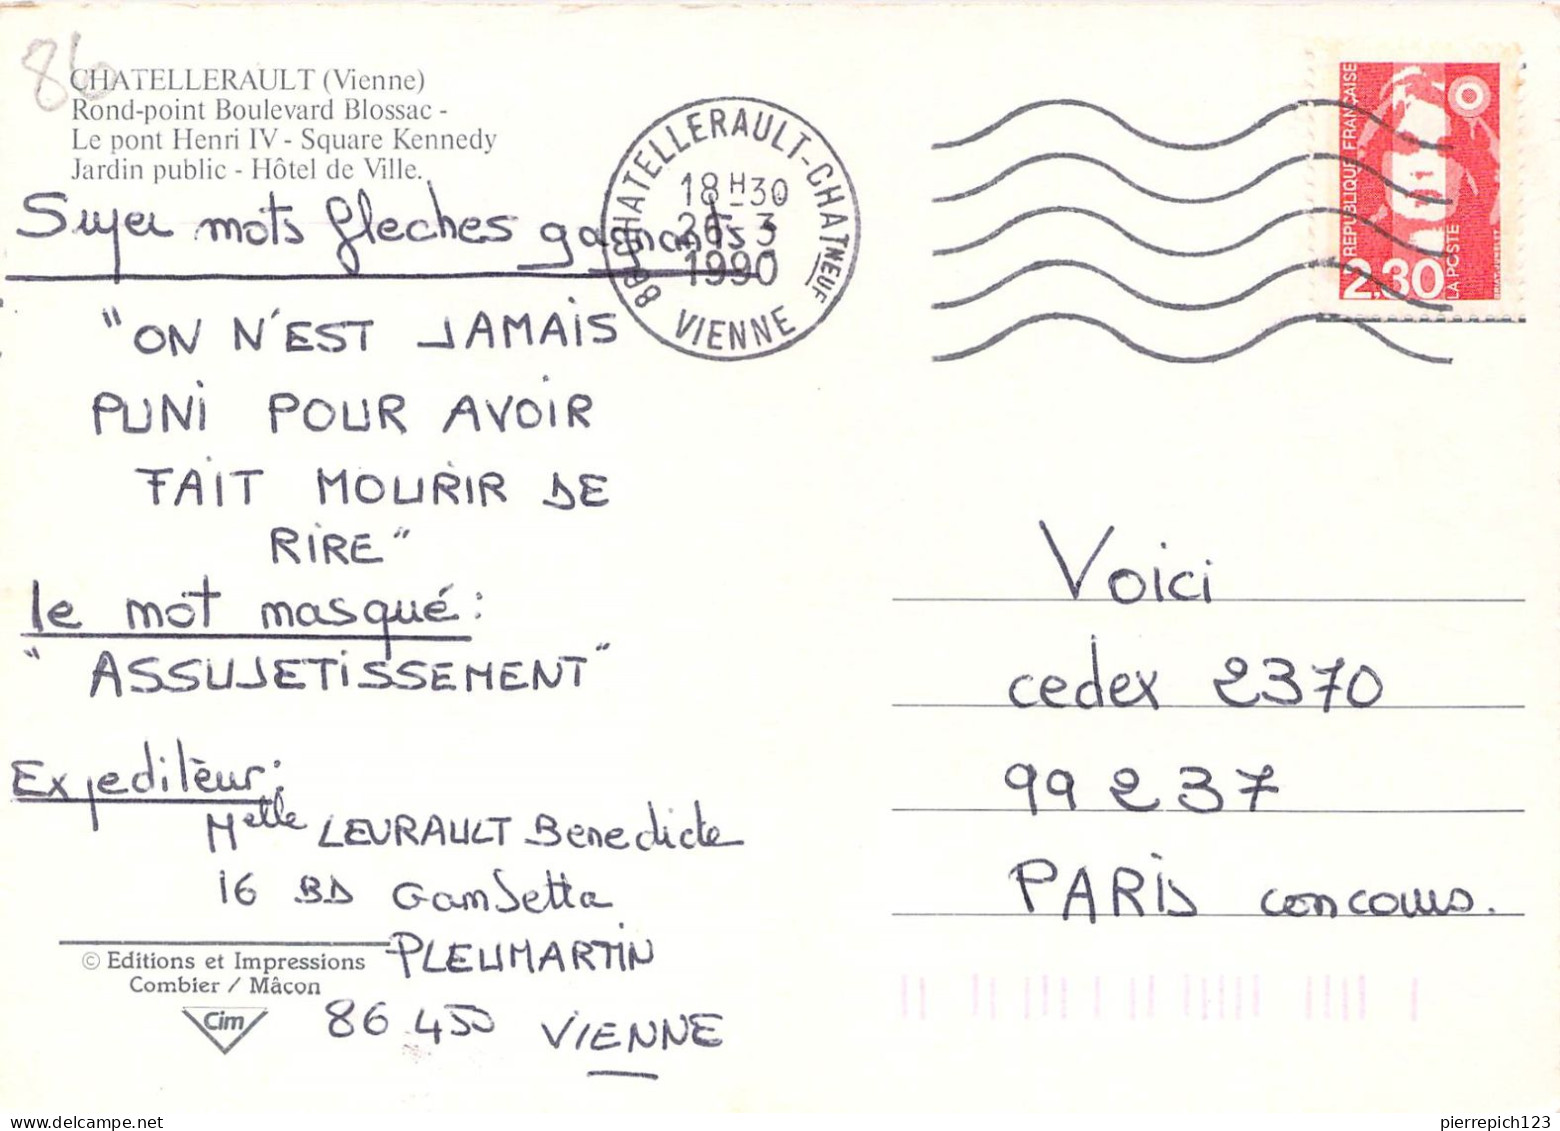 86
CHATELLERAULT (Vienne)
Rond-point Boulevard Blossac -
Le pont Henri IV - Square Kennedy
Jardin public - Hôtel de Ville.
Super mots fleches gagnants
"ON N'EST JAMAIS
PUNI POUR AVOIR
FAIT MOURIR DE
RIRE"
le mot masqué :
"ASSUJETISSEMENT"
Expediteur :
Melle LEURAULT Benedicte
16 BD Gambetta
PLEUMARTIN
86 450 VIENNE
© Editions et Impressions
Combier / Mâcon
Cim
86 CHATELLERAULT-CHATNEUF
18 H 30
26 - 3
1990
VIENNE
REPUBLIQUE FRANÇAISE
2,30
LA POSTE
Voici
cedex 2370
99 237
PARIS concours.
pierrepich123